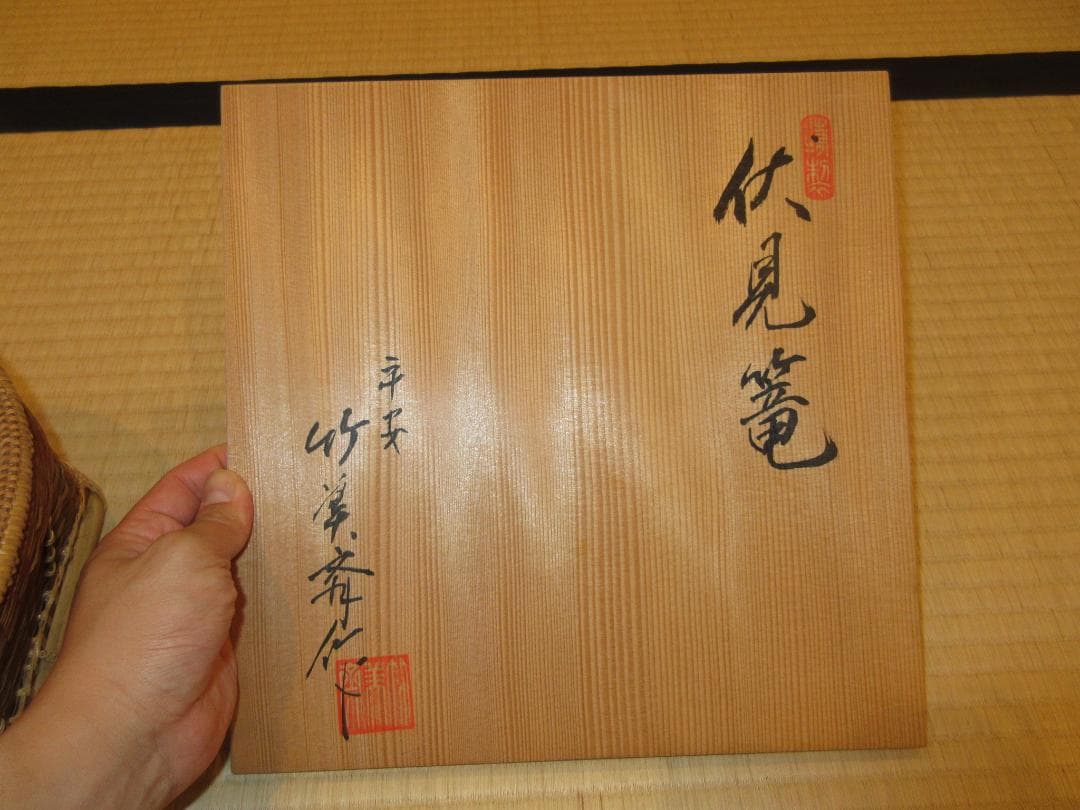 伏見篭
平安
竹美斎作